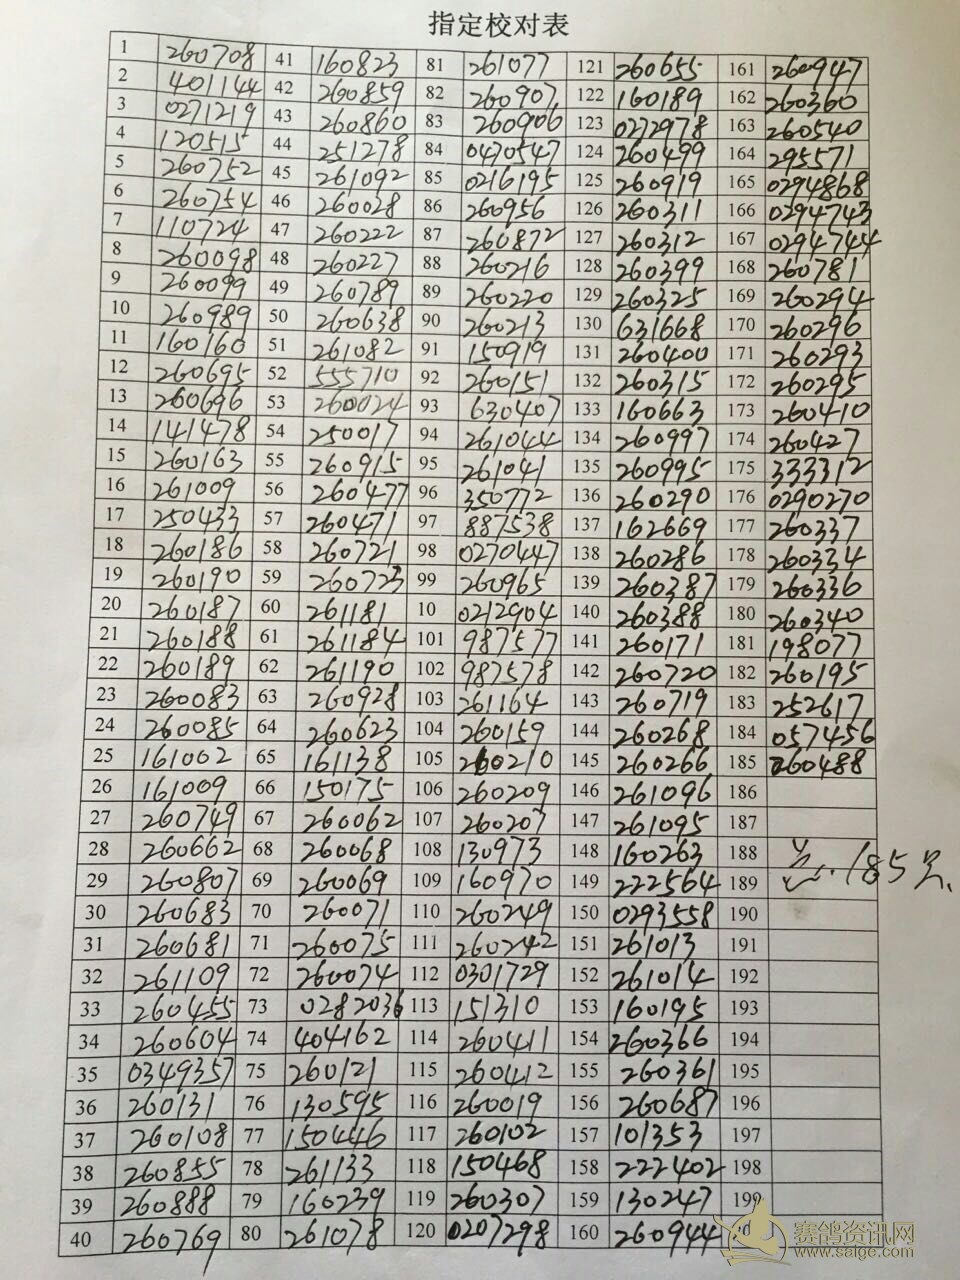 指定校对表
1 260708 41 160823 81 261077 121 260655 161 260947
2 401144 42 260859 82 260907 122 160189 162 260360
3 0271219 43 260860 83 260906 123 0272978 163 260540
4 120515 44 251278 84 0470547 124 260499 164 295571
5 260752 45 261092 85 0216195 125 260919 165 0294868
6 260754 46 260028 86 260956 126 260311 166 0294743
7 110724 47 260222 87 260872 127 260312 167 0294744
8 260098 48 260227 88 260216 128 260399 168 260781
9 260099 49 260789 89 260220 129 260325 169 260294
10 260989 50 260638 90 260213 130 631668 170 260296
11 160160 51 261082 91 150919 131 260400 171 260293
12 260695 52 555710 92 260151 132 260315 172 260295
13 260696 53 260024 93 630407 133 160663 173 260410
14 141478 54 250017 94 261044 134 260997 174 260427
15 260163 55 260915 95 261041 135 260995 175 333312
16 261009 56 260477 96 350772 136 260290 176 0290270
17 250433 57 260471 97 887538 137 162669 177 260337
18 260186 58 260721 98 0270447 138 260286 178 260334
19 260190 59 260723 99 260965 139 260387 179 260336
20 260187 60 261181 10 0212904 140 260388 180 260340
21 260188 61 261184 101 987577 141 260171 181 198077
22 260189 62 261190 102 987578 142 260720 182 260195
23 260083 63 260928 103 261164 143 260719 183 252617
24 260085 64 260623 104 260159 144 260268 184 057456
25 161002 65 161138 105 260210 145 260266 185 260488
26 161009 66 150175 106 260209 146 261096 186
27 260749 67 260062 107 260207 147 261095 187
28 260662 68 260068 108 130973 148 160263 188
29 260807 69 260069 109 160970 149 222564 189 185只
30 260683 70 260071 110 260249 150 0293558 190
31 260681 71 260075 111 260242 151 261013 191
32 261109 72 260074 112 0301729 152 261014 192
33 260455 73 0282036 113 151310 153 160195 193
34 260604 74 404162 114 260411 154 260366 194
35 0349357 75 260121 115 260412 155 260361 195
36 260131 76 130595 116 260019 156 260687 196
37 260108 77 150446 117 260102 157 101353 197
38 260855 78 261133 118 150468 158 222402 198
39 260888 79 160239 119 260307 159 130247 199
40 260769 80 261078 120 0207298 160 260944
赛鸽资讯网
www.saige.com